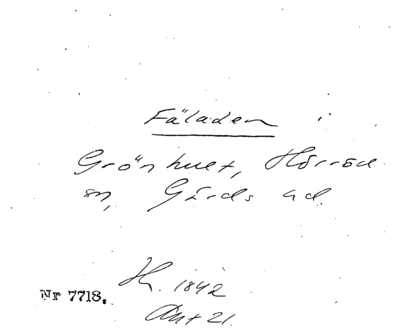 Fäladen
Grönhult, Hörröd
sn, Gärds hd.
H. 1842
Akt 21.
Nr 7718.